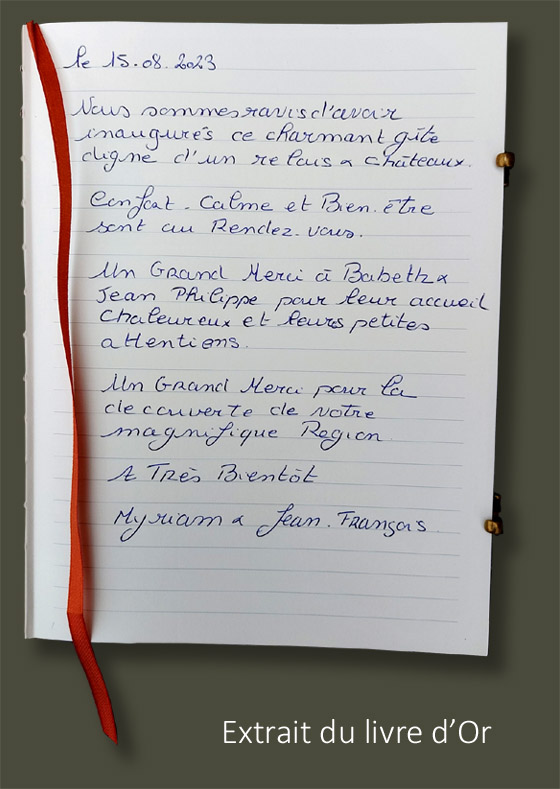 le 15.08.2023
Nous sommes ravis d'avoir
inaugurés ce charmant gîte
digne d'un relais & châteaux.
Confort. Calme et Bien. être
sont au Rendez-vous.
Un Grand Merci à Babeth &
Jean Philippe pour leur accueil
chaleureux et leurs petites
attentions.
Un Grand Merci pour la
decouverte de votre
magnifique Region
A Très Bientôt
Myriam & Jean. François
Extrait du livre d'Or